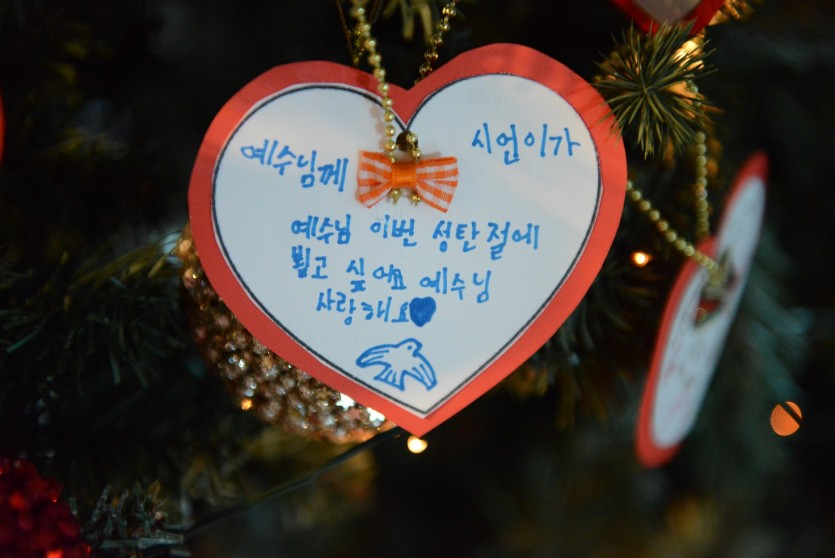 예수님께
시언이가
예수님 이번 성탄절에
뵙고 싶어요 예수님
사랑해요